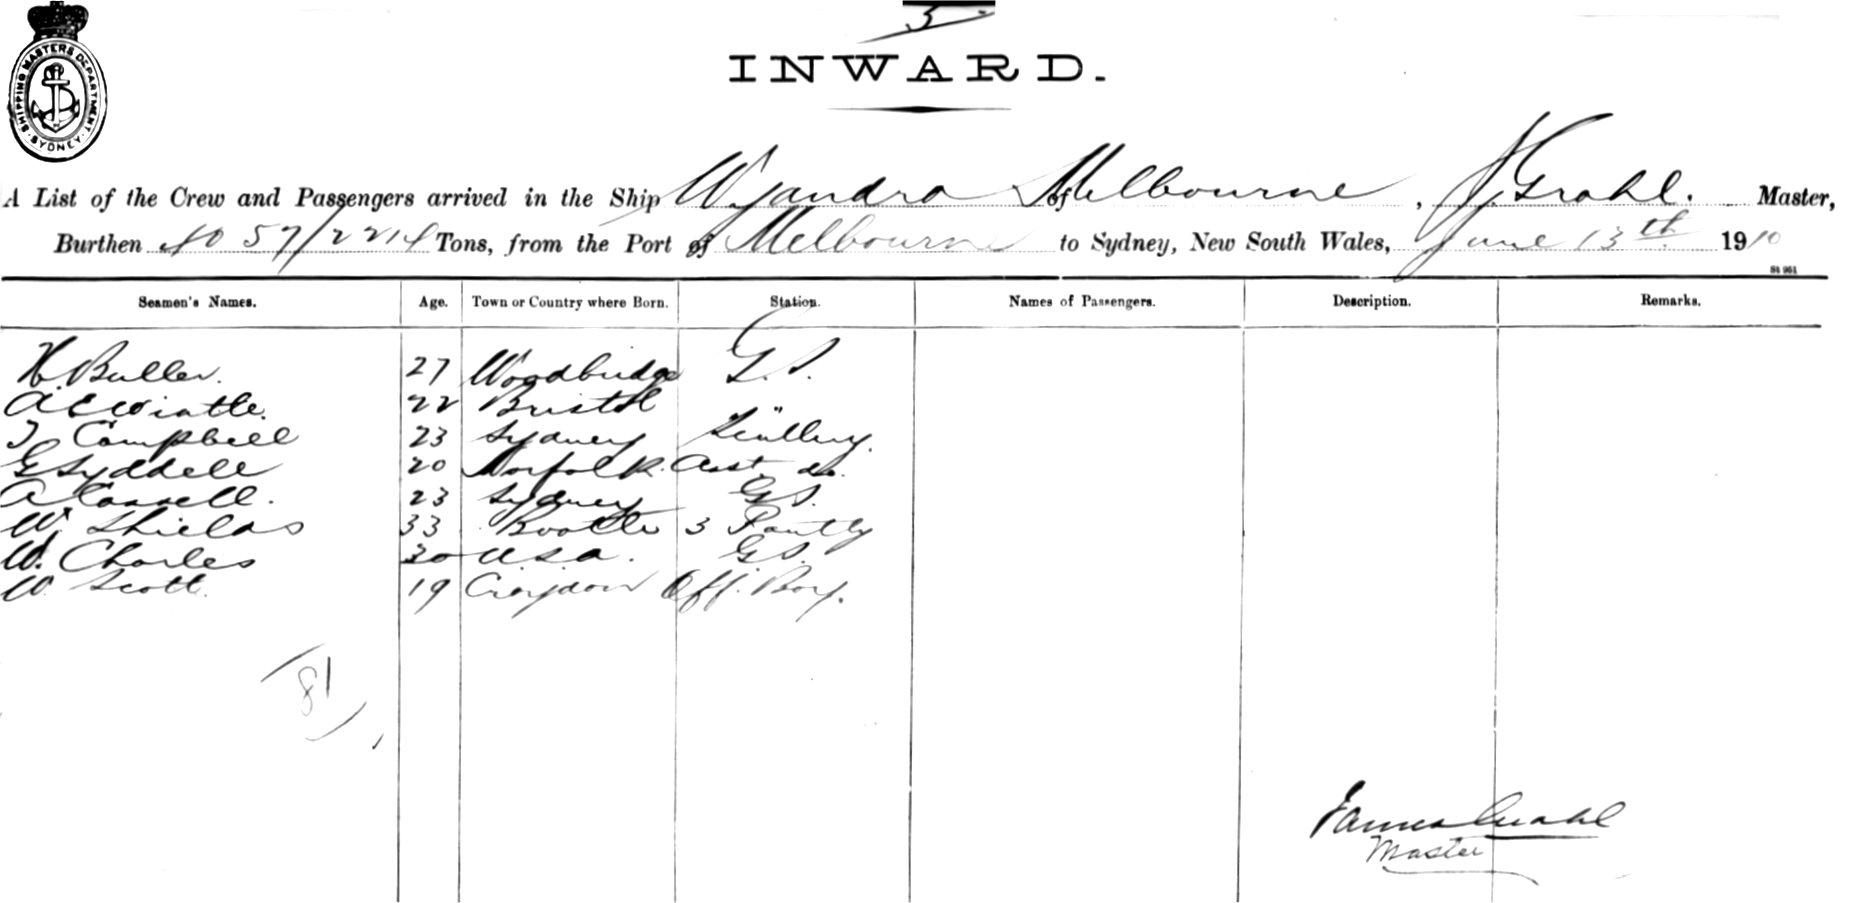 3
SHIPPING MASTERS DEPARTMENT SYDNEY
INWARD.
A List of the Crew and Passengers arrived in the Ship Wyandra of Melbourne, J Grahl. Master,
Burthen No 57/2214 Tons, from the Port of Melbourne to Sydney, New South Wales, June 13th 1910
Seamen's Names. Age. Town or Country where Born. Station. Names of Passengers. Description. Remarks.
H. Buller. 27 Woodbridge G.S.
A E Wintle. 22 Bristol
Campbell 23 Sydney
G Syddell 20 Norfolk. Asst. do.
A 23 Sydney GS.
W. Shields 33 Bootle 3 Pantry
W. Charles 30 U.S.A. G.S.
W. Scott. 19 Croydon Off. Boy.
8
James Grahl
Master